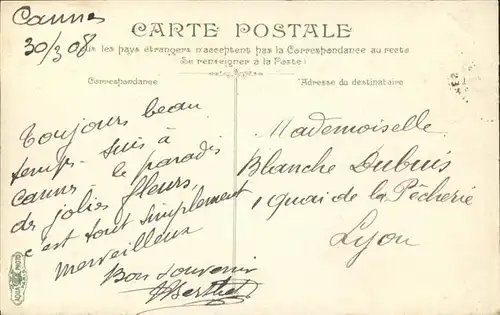 Cannes
30/3 08
CARTE POSTALE
us les pays étrangers n'acceptent pas la Correspondance au recto
Se renseigner à la Poste)
Correspondance
Adresse du destinataire
Toujours beau
temps. Suis à
Cannes le paradis
des jolies fleurs,
c'est tout simplement
merveilleux
Bon souvenir
Berthet
Mademoiselle
Blanche Dubuis
1 quai de la Pêcherie
Lyon